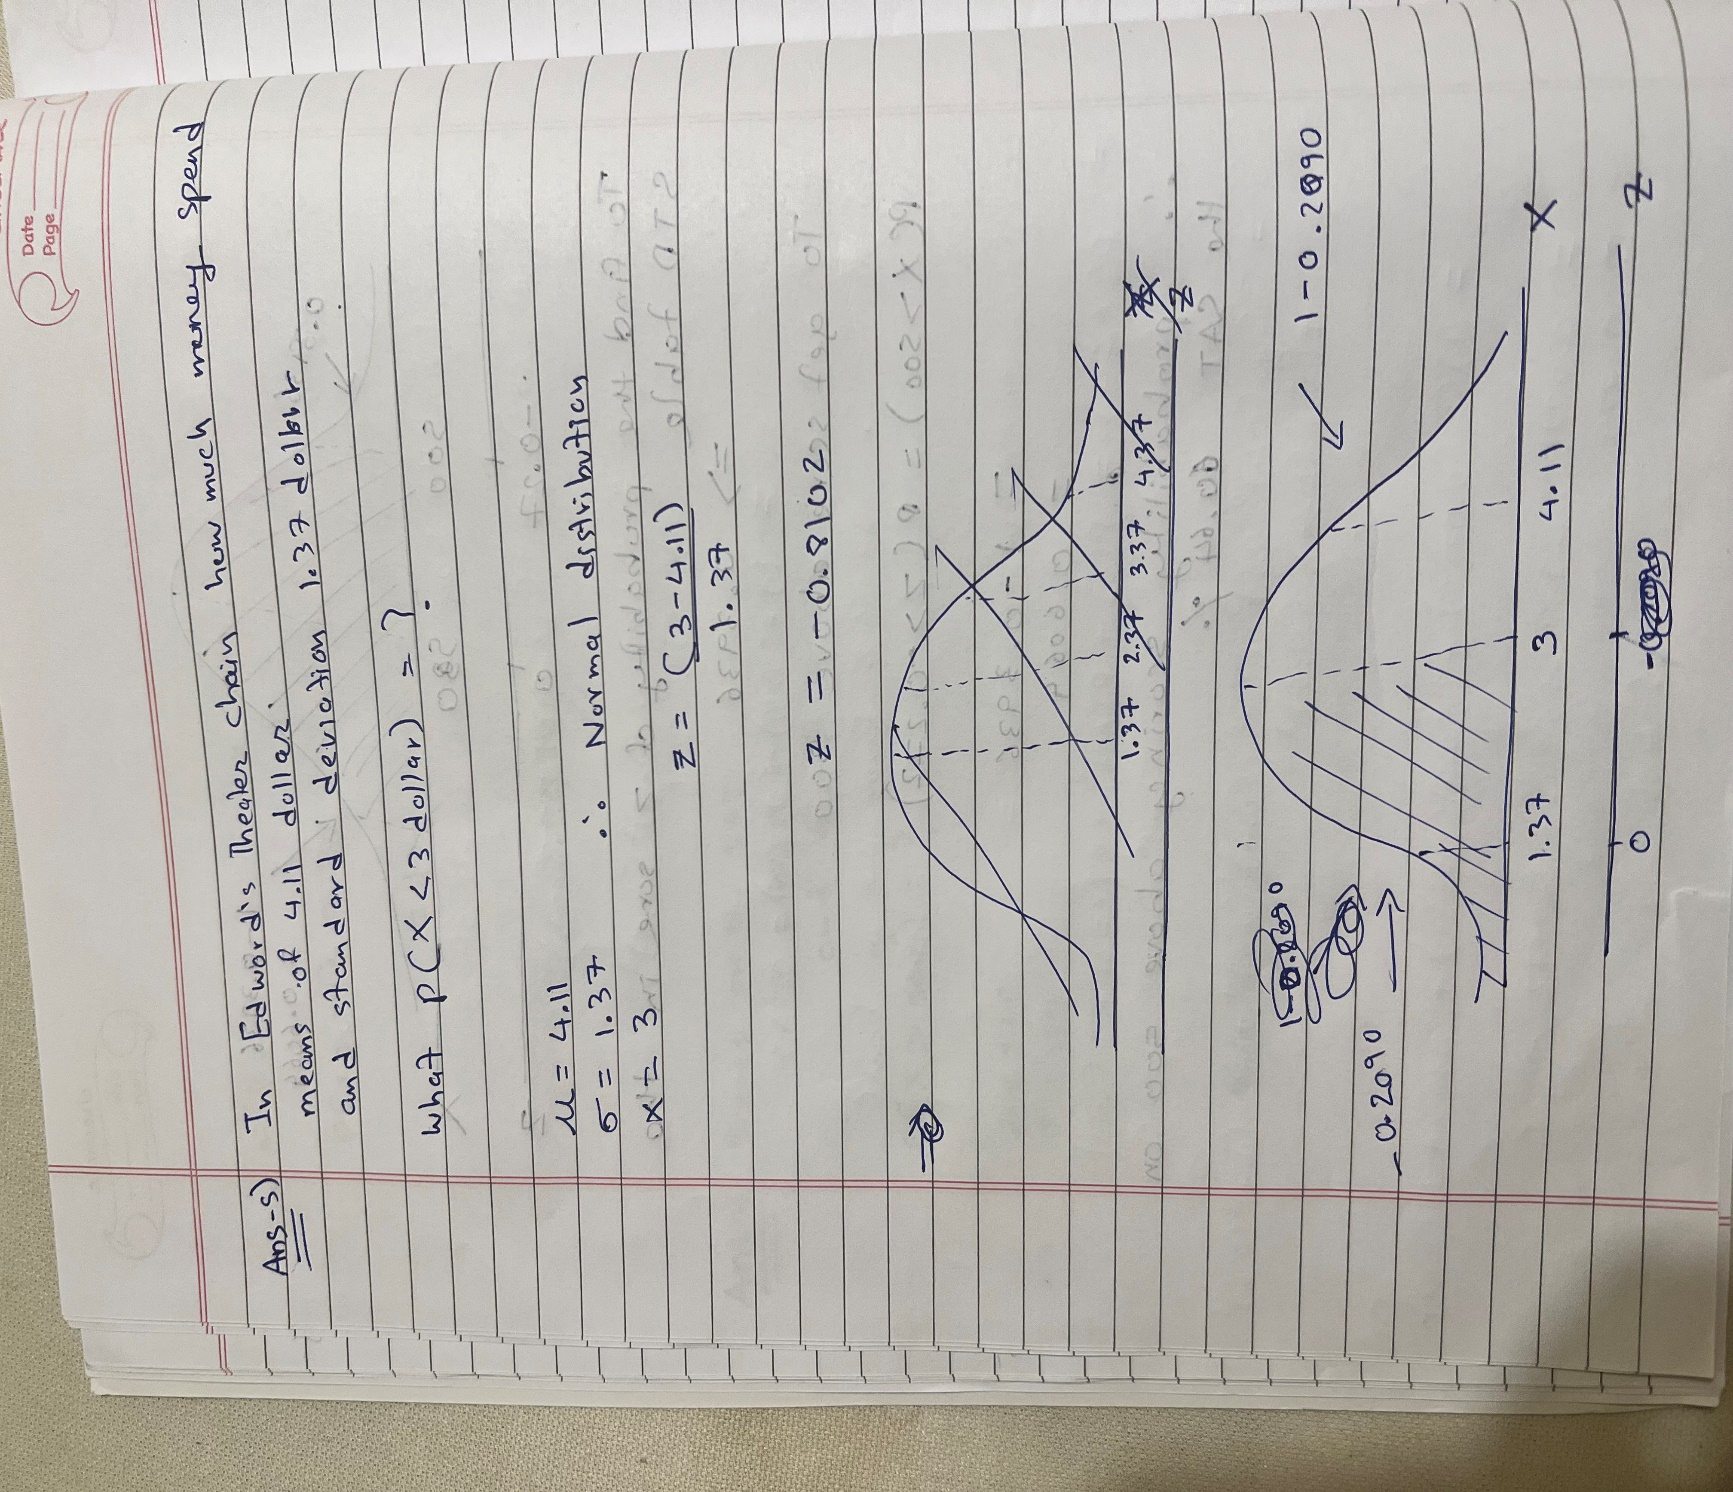 Date
Page
Ans-5) In Edword's Theater chain how much money spend
means of 4.11 dollar.
and standard deviation 1.37 dollar
what P(X < 3 dollar) = ?
μ = 4.11
σ = 1.37 ∴ Normal distribution
x = 3
z = (3-4.11)
1.37
z = -0.8102
1.37 2.37 3.37 4.37
z
1-0.2090
-0.2090
1.37 3 4.11 X
0 z